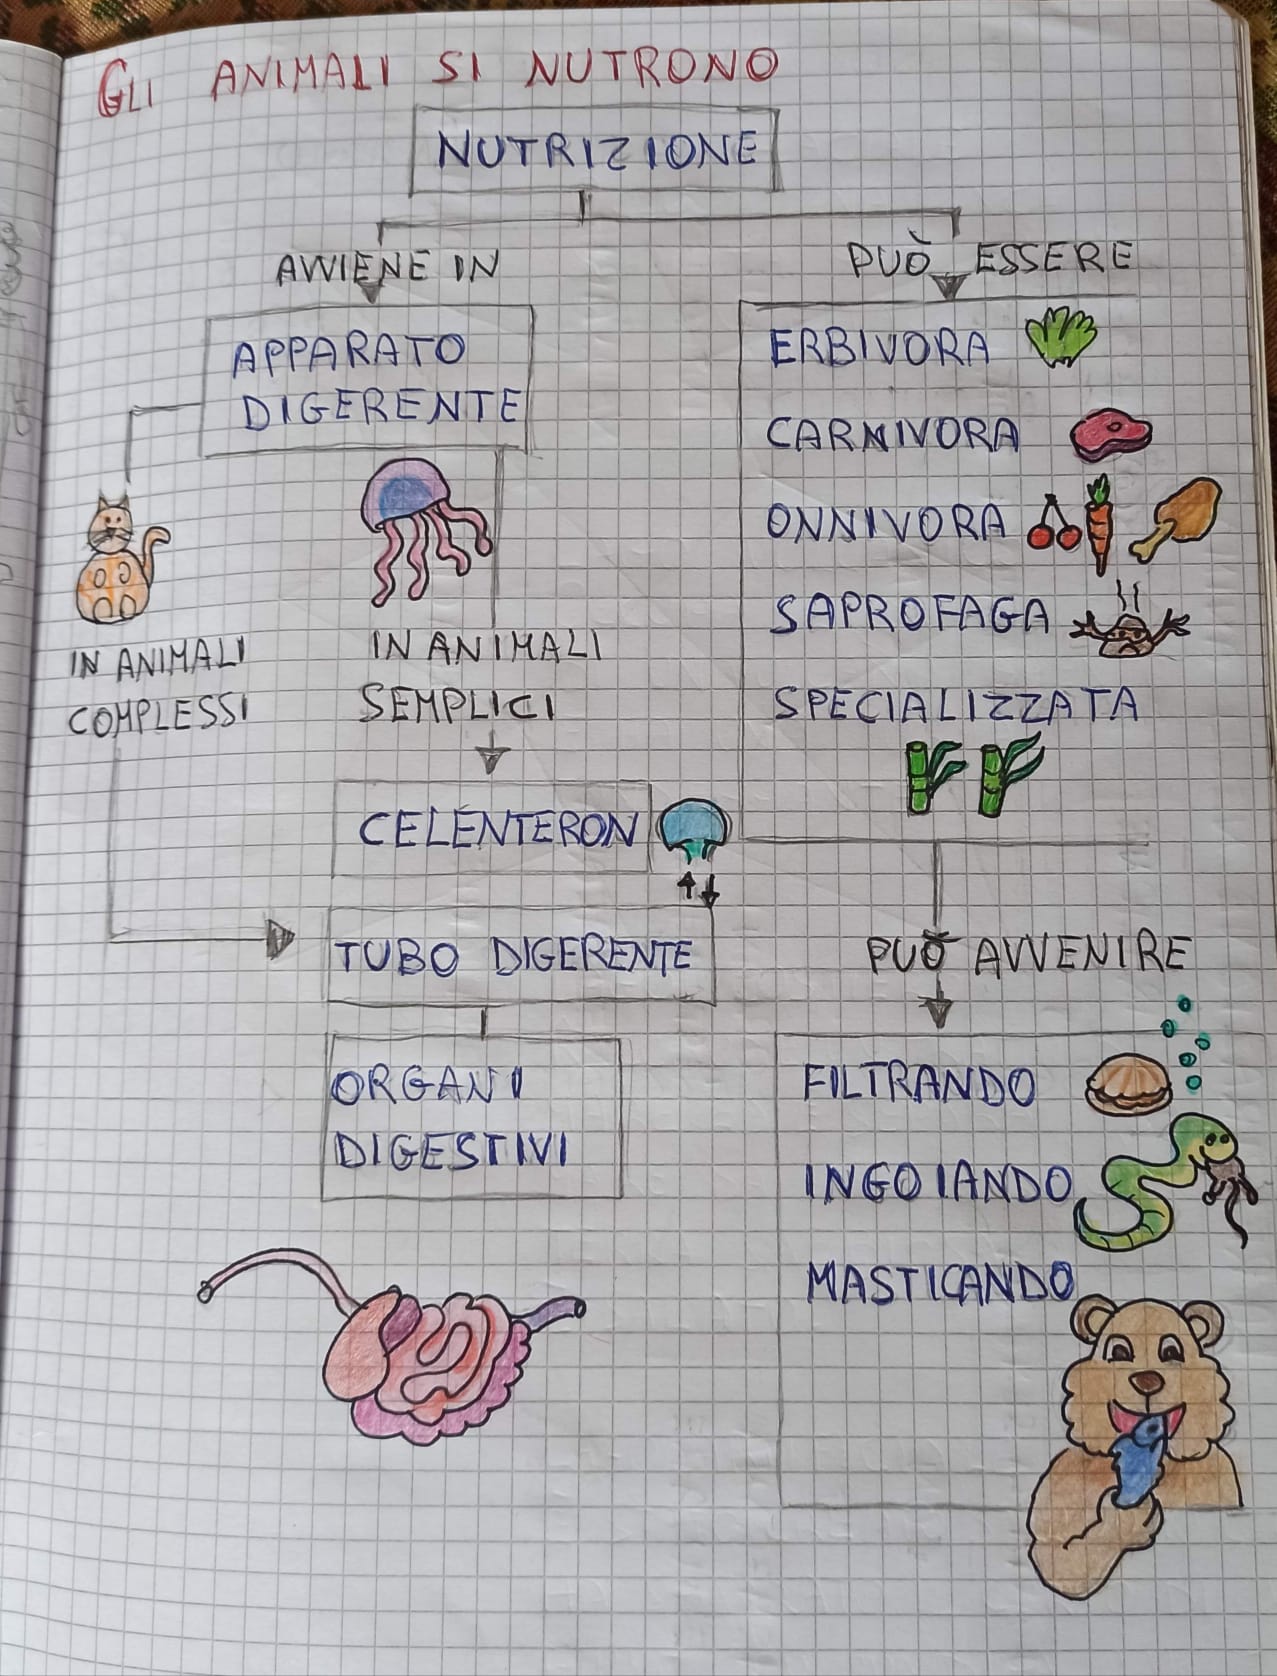 GLI ANIMALI SI NUTRONO
NUTRIZIONE
AVVIENE IN
APPARATO
DIGERENTE
IN ANIMALI
COMPLESSI
IN ANIMALI
SEMPLICI
CELENTERON
TUBO DIGERENTE
ORGANI
DIGESTIVI
PUÒ ESSERE
ERBIVORA
CARNIVORA
ONNIVORA
SAPROFAGA
SPECIALIZZATA
PUÒ AVVENIRE
FILTRANDO
INGOIANDO
MASTICANDO